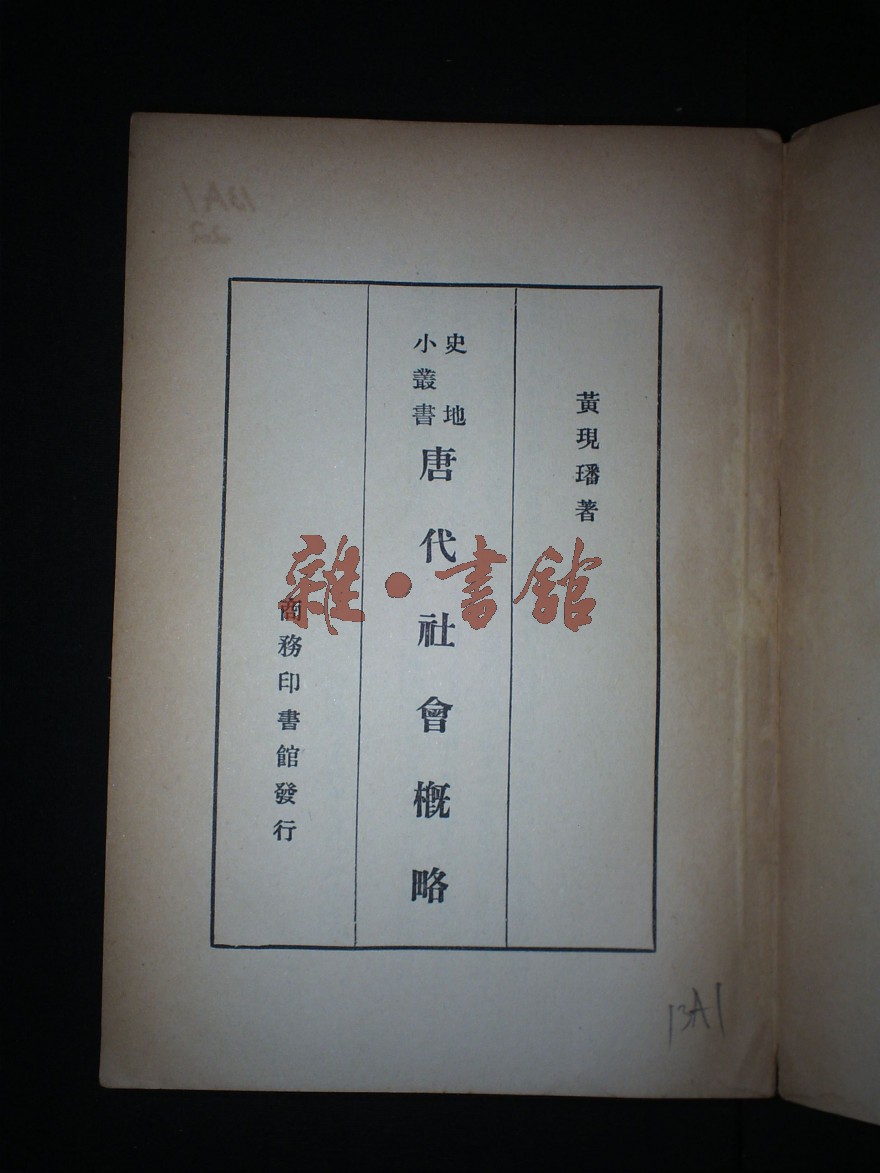 黃現璠著
史地
小叢書
唐代社會槪略
商務印書館發行
雜·書館
13A1